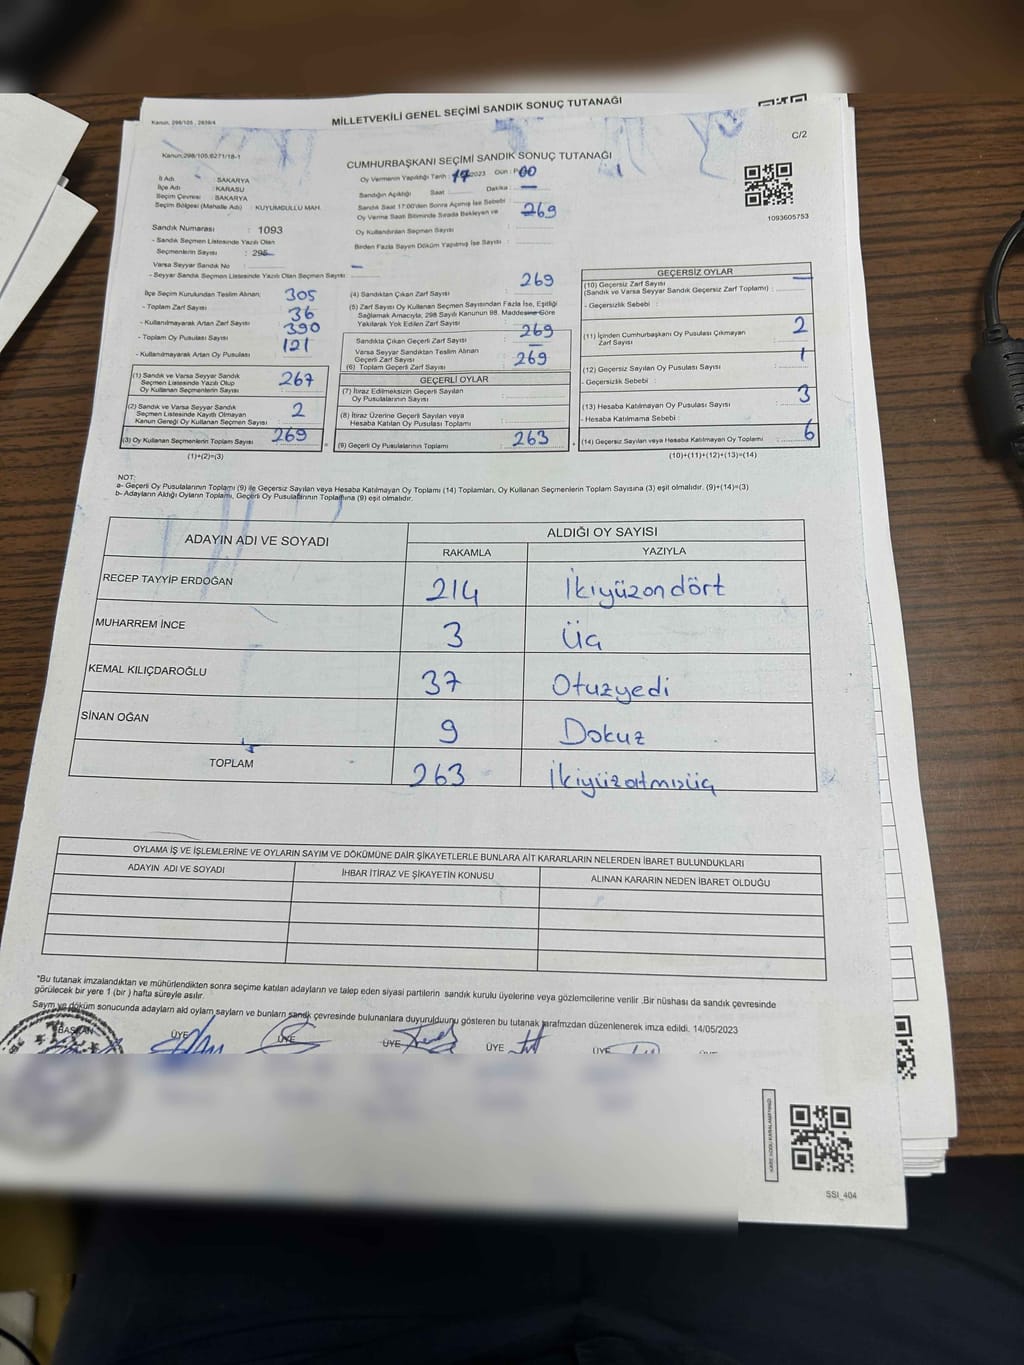 Kanun, 298/105 , 2839/4
MİLLETVEKİLİ GENEL SEÇİMİ SANDIK SONUÇ TUTANAĞI
C/2
Kanun:298/105;6271/18-1
CUMHURBAŞKANI SEÇİMİ SANDIK SONUÇ TUTANAĞI
İl Adı : SAKARYA
İlçe Adı : KARASU
Seçim Çevresi : SAKARYA
Seçim Bölgesi (Mahalle Adı) : KUYUMCULLU MAH.
Sandık Numarası : 1093
- Sandık Seçmen Listesinde Yazılı Olan
Seçmenlerin Sayısı : 295
Varsa Seyyar Sandık No :
- Seyyar Sandık Seçmen Listesinde Yazılı Olan Seçmen Sayısı :
Oy Vermenin Yapıldığı Tarih : 2023 Gün :
Sandığın Açıldığı Saat : Dakika :
Sandık Saat 17:00'den Sonra Açılmış İse Sebebi
Oy Verme Saati Bitiminde Sırada Bekleyen ve 269
Oy Kullandırılan Seçmen Sayısı :
Birden Fazla Sayım Döküm Yapılmış İse Sayısı :
1093605753
İlçe Seçim Kurulundan Teslim Alınan;
- Toplam Zarf Sayısı : 305
- Kullanılmayarak Artan Zarf Sayısı : 36
- Toplam Oy Pusulası Sayısı : 390
- Kullanılmayarak Artan Oy Pusulası : 121
(1) Sandık ve Varsa Seyyar Sandık
Seçmen Listesinde Yazılı Olup
Oy Kullanan Seçmenlerin Sayısı : 267
(2) Sandık ve Varsa Seyyar Sandık
Seçmen Listesinde Kayıtlı Olmayan
Kanun Gereği Oy Kullanan Seçmen Sayısı : 2
(3) Oy Kullanan Seçmenlerin Toplam Sayısı 269
(1)+(2)=(3)
(4) Sandıktan Çıkan Zarf Sayısı : 269
(5) Zarf Sayısı Oy Kullanan Seçmen Sayısından Fazla İse, Eşitliği
Sağlamak Amacıyla, 298 Sayılı Kanunun 98. Maddesine Göre
Yakılarak Yok Edilen Zarf Sayısı :
Sandıkta Çıkan Geçerli Zarf Sayısı : 269
Varsa Seyyar Sandıktan Teslim Alınan
Geçerli Zarf Sayısı :
(6) Toplam Geçerli Zarf Sayısı : 269
GEÇERLİ OYLAR
(7) İtiraz Edilmeksizin Geçerli Sayılan
Oy Pusulalarının Sayısı :
(8) İtiraz Üzerine Geçerli Sayılan veya
Hesaba Katılan Oy Pusulası Toplamı :
(9) Geçerli Oy Pusulalarının Toplamı : 263
GEÇERSİZ OYLAR
(10) Geçersiz Zarf Sayısı
(Sandık ve Varsa Seyyar Sandık Geçersiz Zarf Toplamı) :
- Geçersizlik Sebebi :
(11) İçinden Cumhurbaşkanı Oy Pusulası Çıkmayan
Zarf Sayısı : 2
(12) Geçersiz Sayılan Oy Pusulası Sayısı : 1
- Geçersizlik Sebebi :
(13) Hesaba Katılmayan Oy Pusulası Sayısı : 3
- Hesaba Katılmama Sebebi :
(14) Geçersiz Sayılan veya Hesaba Katılmayan Oy Toplamı : 6
(10)+(11)+(12)+(13)=(14)
NOT:
a- Geçerli Oy Pusulalarının Toplamı (9) ile Geçersiz Sayılan veya Hesaba Katılmayan Oy Toplamı (14) Toplamları, Oy Kullanan Seçmenlerin Toplam Sayısına (3) eşit olmalıdır. (9)+(14)=(3)
b- Adayların Aldığı Oyların Toplamı, Geçerli Oy Pusulalarının Toplamına (9) eşit olmalıdır.
ADAYIN ADI VE SOYADI
ALDIĞI OY SAYISI
RAKAMLA YAZIYLA
RECEP TAYYİP ERDOĞAN 214 İkiyüzondört
MUHARREM İNCE 3 Üç
KEMAL KILIÇDAROĞLU 37 Otuzyedi
SİNAN OĞAN 9 Dokuz
TOPLAM 263 İkiyüzatmışüç
OYLAMA İŞ VE İŞLEMLERİNE VE OYLARIN SAYIM VE DÖKÜMÜNE DAİR ŞİKAYETLERLE BUNLARA AİT KARARLARIN NELERDEN İBARET BULUNDUKLARI
ADAYIN ADI VE SOYADI İHBAR İTİRAZ VE ŞİKAYETİN KONUSU ALINAN KARARIN NEDEN İBARET OLDUĞU
*Bu tutanak imzalandıktan ve mühürlendikten sonra seçime katılan adayların ve talep eden siyasi partilerin sandık kurulu üyelerine veya gözlemcilerine verilir .Bir nüshası da sandık çevresinde
görülecek bir yere 1 (bir ) hafta süreyle asılır.
Sayım ve döküm sonucunda adayların aldı oyların sayıları ve bunların sandık çevresinde bulunanlara duyurulduğunu gösteren bu tutanak tarafımızdan düzenlenerek imza edildi. 14/05/2023
BAŞKAN ÜYE ÜYE ÜYE ÜYE ÜYE
SSİ_404